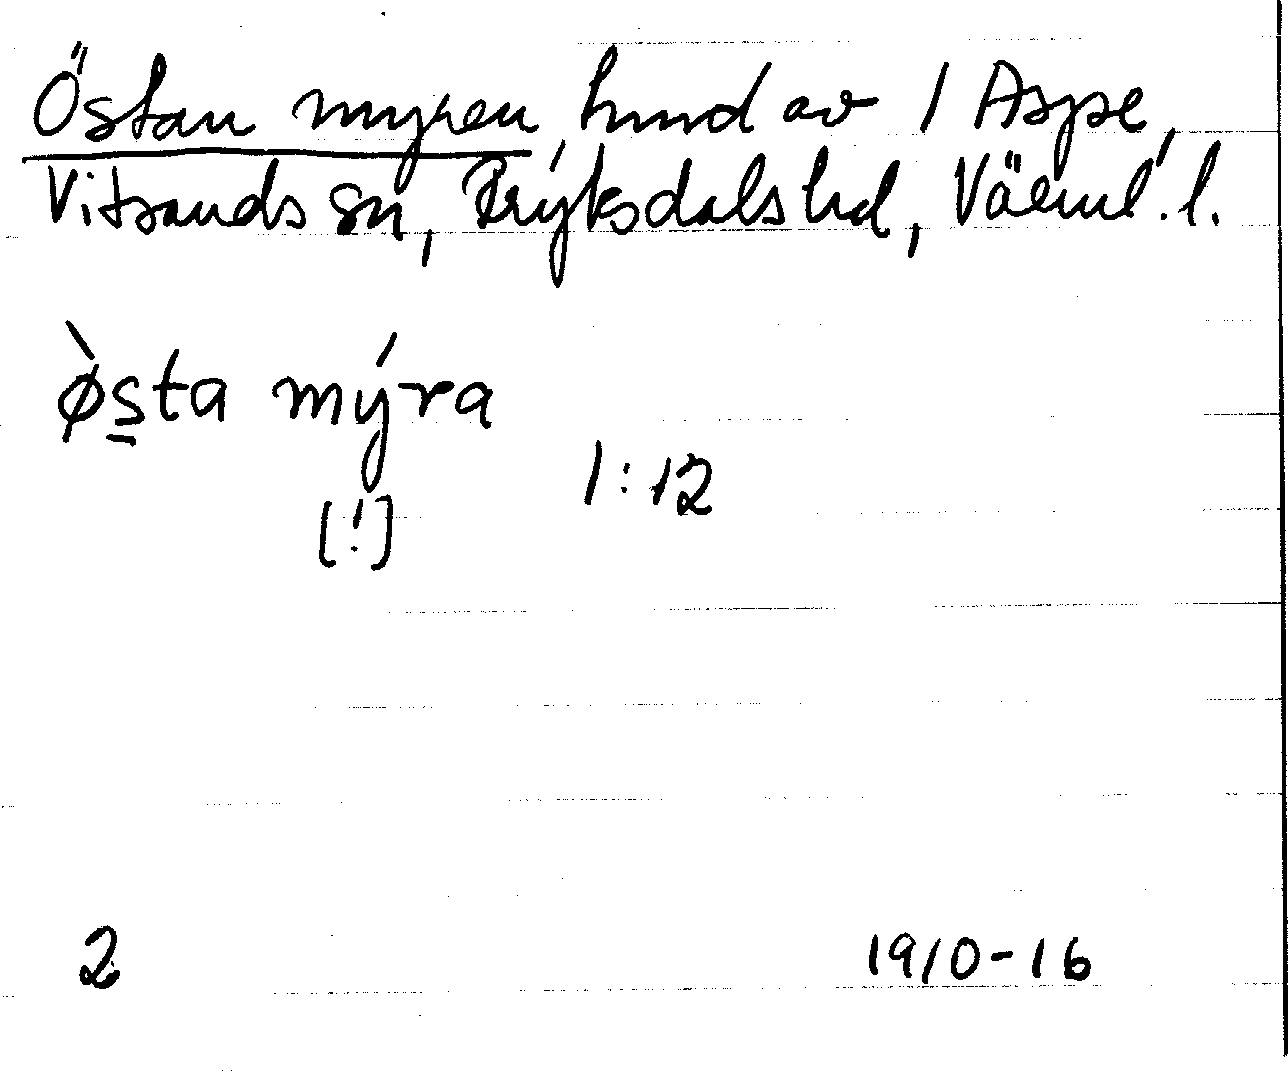 Östan myren, hmd av 1 Aspe,
Vitsands sn, Fryksdals hd, Värml. l.
ø̀s̲ta mýra
1:12
[!]
2 1910-16